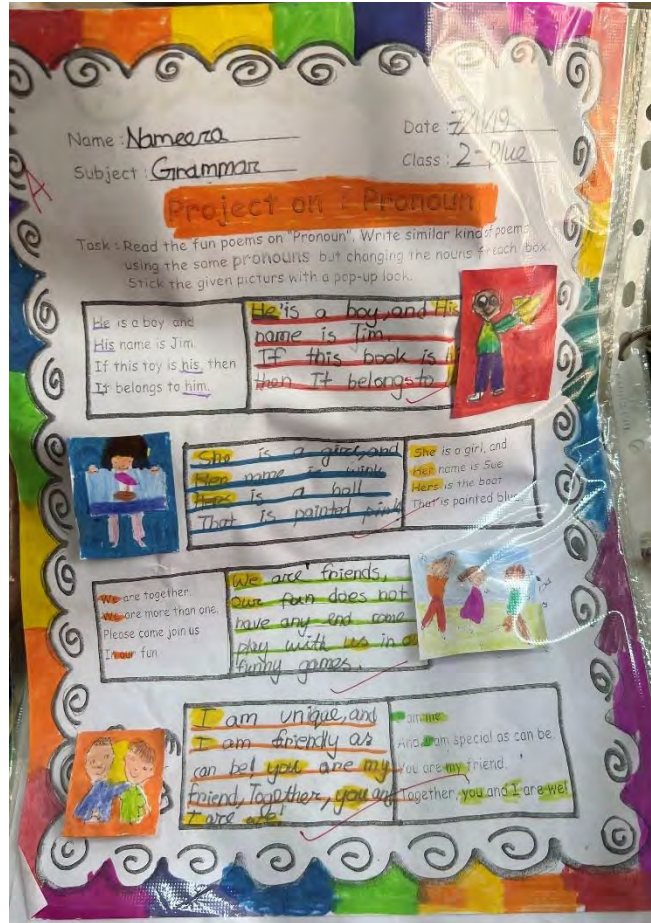 Name : Nameera
Date : 7/11/19
Subject : Grammar
Class : 2-Blue
A
Project on : Pronoun
Task : Read the fun poems on "Pronoun". Write similar kind of poems
using the same pronouns but changing the nouns for each box.
Stick the given picture with a pop-up look.
He is a boy and
His name is Jim.
If this toy is his, then
It belongs to him.
He is a boy, and His
name is Jim.
If this book is
then It belongs to
She is a girl, and
Her name is
Hers is a ball
That is painted pink
She is a girl, and
Her name is Sue
Hers is the boat
That is painted blue.
We are together.
We are more than one.
Please come join us
In our fun
We are friends,
Our fun does not
have any end come
play with us in
funny games.
I am unique, and
I am friendly as
can be! you are my
friend, Together, you and
I are we!
I am me
And I am special as can be.
You are my friend.
Together, you and I are we!